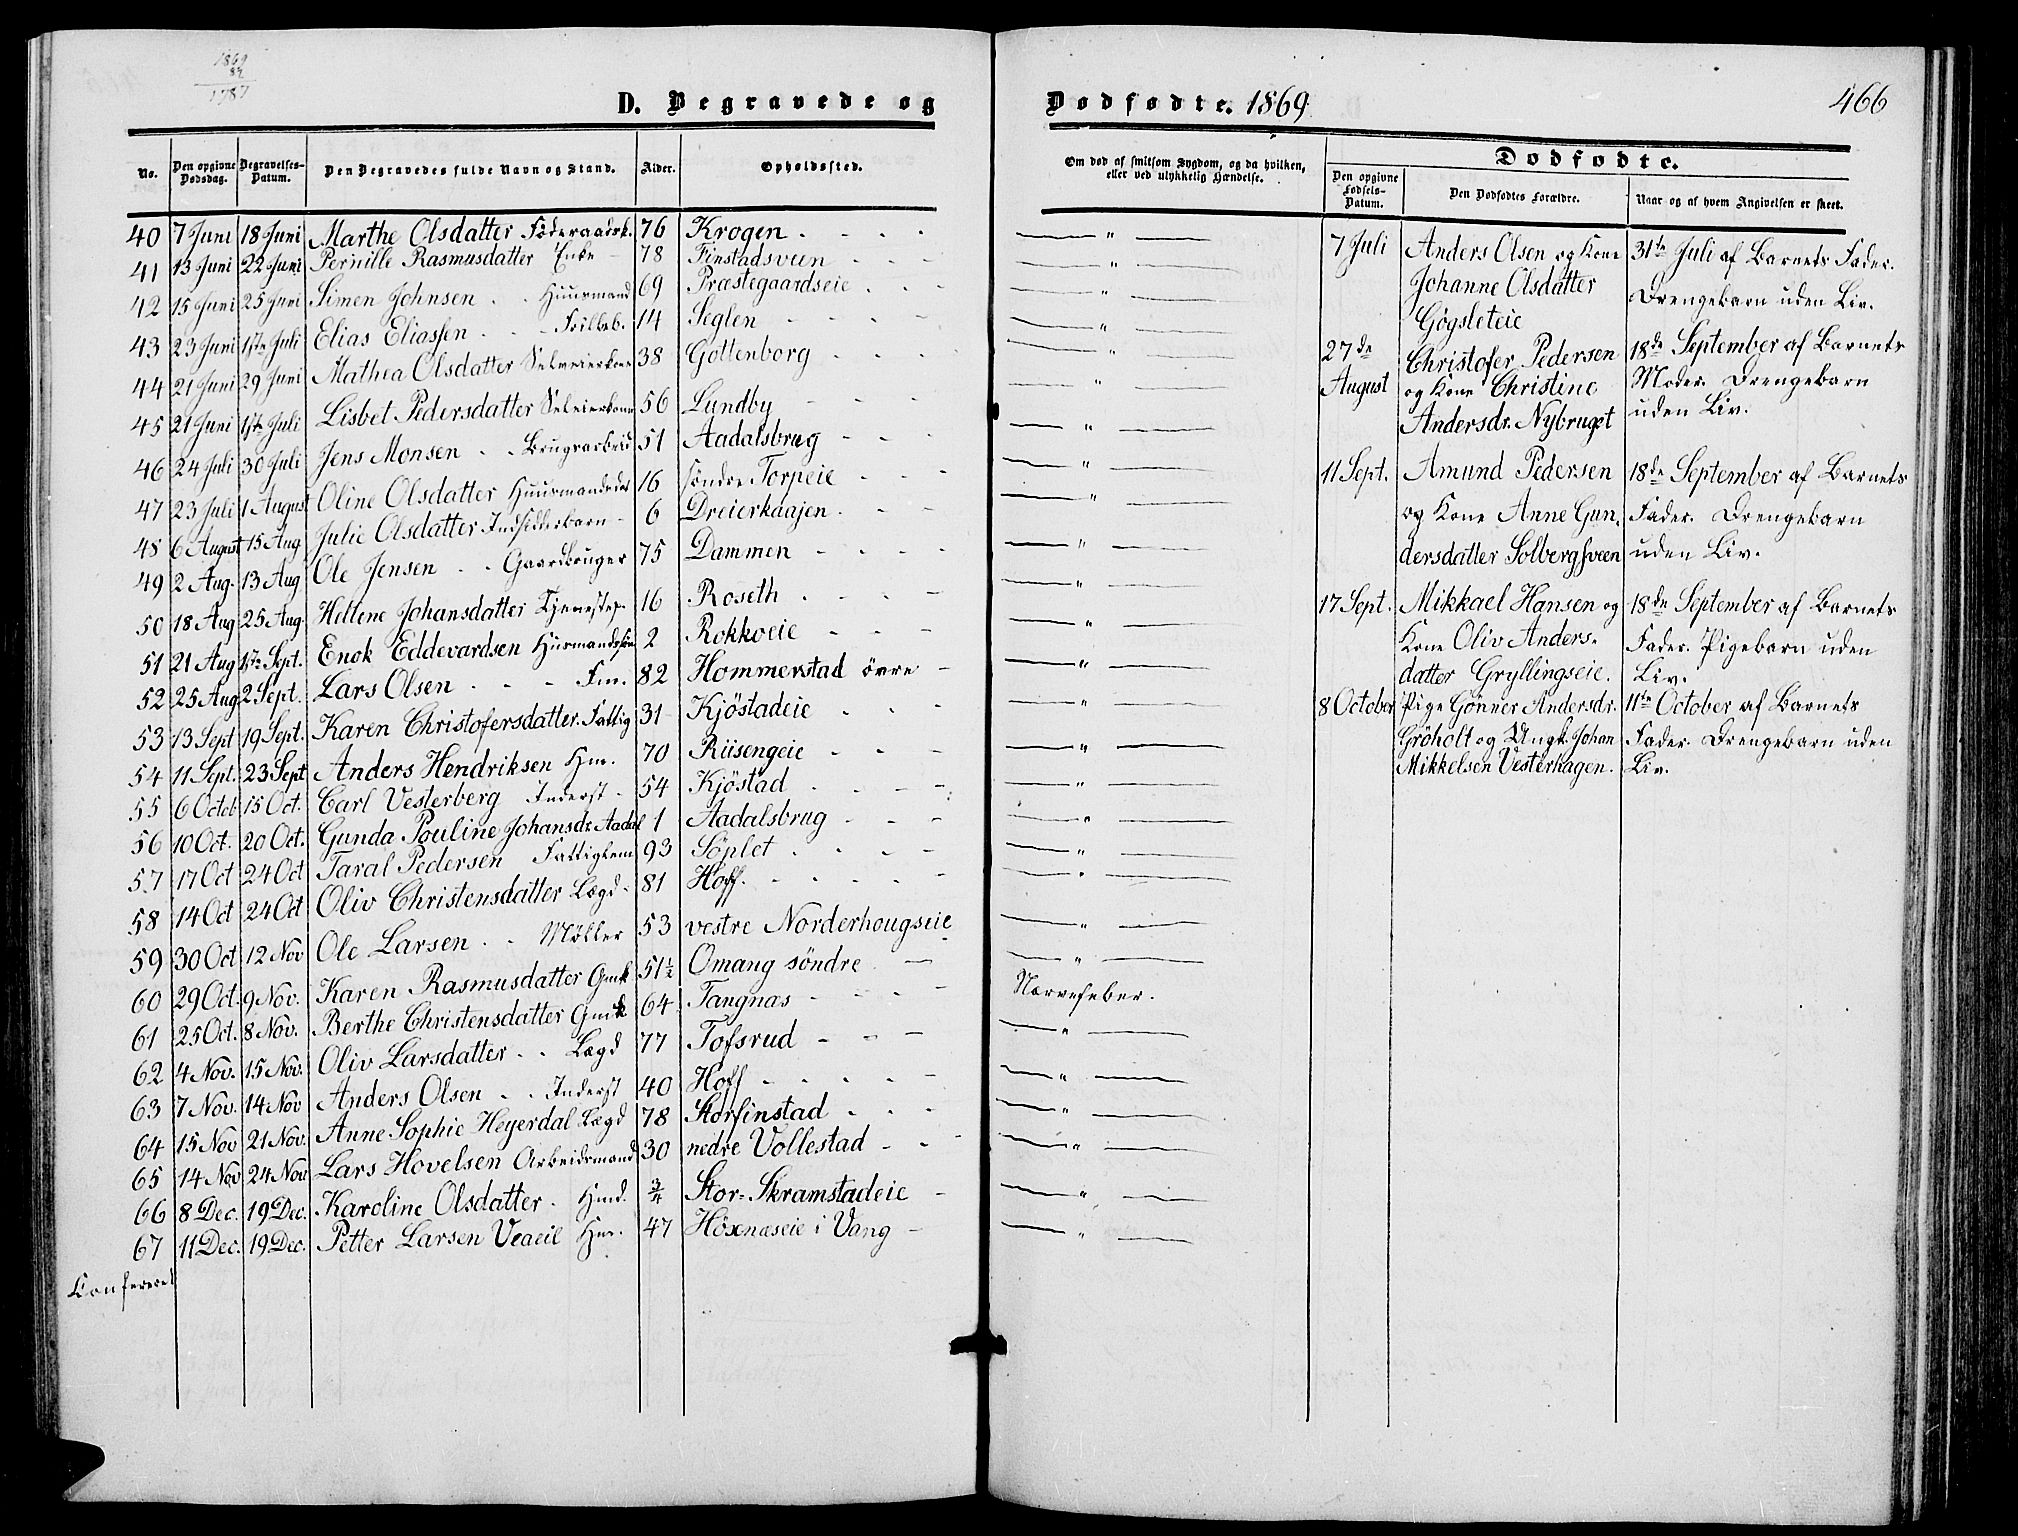 1869
82
1787
D. Begravede og
No. Den opgivne Dødsdag. Begravelses-Datum. Den Begravedes fulde Navn og Stand. Alder. Opholdssted.
40 7 Juni 18 Juni Marthe Olsdatter Föderaadsk. 76 Krogen
41 13 Juni 22 Juni Pernille Rasmusdatter Enke 78 Finstadsveen
42 15 Juni 25 Juni Simen Johnsen Huusmand 69 Præstegaardseie
43 23 Juni 1ste Juli Elias Eliassen 14 Seglen
44 21 Juni 29 Juni Mathea Olsdatter Selveierkone 38 Gottenborg
45 21 Juni 1ste Juli Lisbet Pedersdatter Selveierkone 56 Lundby
46 24 Juli 30 Juli Jens Monsen Brugsarbeid 51 Aadalsbrug
47 23 Juli 1 August Oline Olsdatter Huusmandsdat 16 söndre Torpeie
48 6 August 15 Aug Julie Olsdatter Indsidderbarn 6 Dreierkaajen
49 2 Aug. 13 Aug Ole Jensen Gaardbruger 75 Dammen
50 18 Aug 25 Aug Hellene Johansdatter Tjenestep. 16 Roseth
51 21 Aug 1ste Sept. Enok Eddevardsen 2 Rokkoeie
52 25 Aug 2 Sept. Lars Olsen Fm. 82 Hommerstad övre
53 13 Sept 19 Sept. Karen Christofersdatter. Fattig 31 Kjöstadeie
54 11 Sept. 23 Sept Anders Hendriksen Hm. 70 Riisengeie
55 6 Octob 15 Oct. Carl Vesterberg Inderst 54 Kjöstad
56 10 Oct. 20 Oct. Gunda Pouline Johansdr. Aadal 1 Aadalsbrug
57 17 Oct 24 Oct Taral Pedersen Fattiglem 93 Söplet
58 14 Oct 24 Oct Oliv Christensdatter Lægd 81 Hoff.
59 30 Oct 12 Nov Ole Larsen Møller 53 vestre Norderhougseie
60 29 Oct. 9 Nov. Karen Rasmusdatter Gmk 51½ Omang söndre
61 25 Oct. 8 Nov. Berthe Christensdatter Gmk 64 Tangnæs
62 4 Nov. 15 Nov. Oliv Larsdatter Lægd 77 Tofsrud
63 7 Nov. 14 Nov Anders Olsen Inderst 40 Hoff
64 15 Nov 21 Nov. Anne Sophie Heyerdal Lægd 78 Storfinstad
65 14 Nov 24 Nov Lars Hovelsen Arbeidsmand 30 nedre Vollestad
66 8 Dec. 19 Dec. Karoline Olsdatter. Hmd. ¾ Stor-Skramstadeie
67 11 Dec. 19 Dec. Petter Larsen Veaeie Hm. 47 Höxnæseie i Vang
Confereret
Dødfødte. 1869
466
Om død af smitsom Sygdom, og da hvilken, eller ved ulykkelig Hændelse.
Nervefeber.
Dødfødte.
Den opgivne Fødsels-Datum. Den Dødfødtes Forældre. Naar og af hvem Angivelsen er skeet.
7 Juli Anders Olsen og Kone 31te Juli af Barnets Fader.
Johanne Olsdatter Drengebarn uden Liv.
Gögsleteie
27de Christofer Pedersen 18de September af Barnets
August og Kone Christine Moder. Drengebarn
Andersdr. Nybruget uden Liv.
11 Sept. Amund Pedersen 18de September af Barnets
og Kone Anne Gun- Fader. Drengebarn
dersdatter Solbergsveen uden Liv.
17 Sept. Mikkael Hansen og 18de September af Barnets
Kone Oliv Anders- Fader. Pigebarn uden
datter Gryllingseie. Liv.
8 October Pige Gönner Andersdr. 11te October af Barnets
Gröholt og Ungk. Johan Fader. Drengebarn uden
Mikkelsen Vesterhagen. Liv.